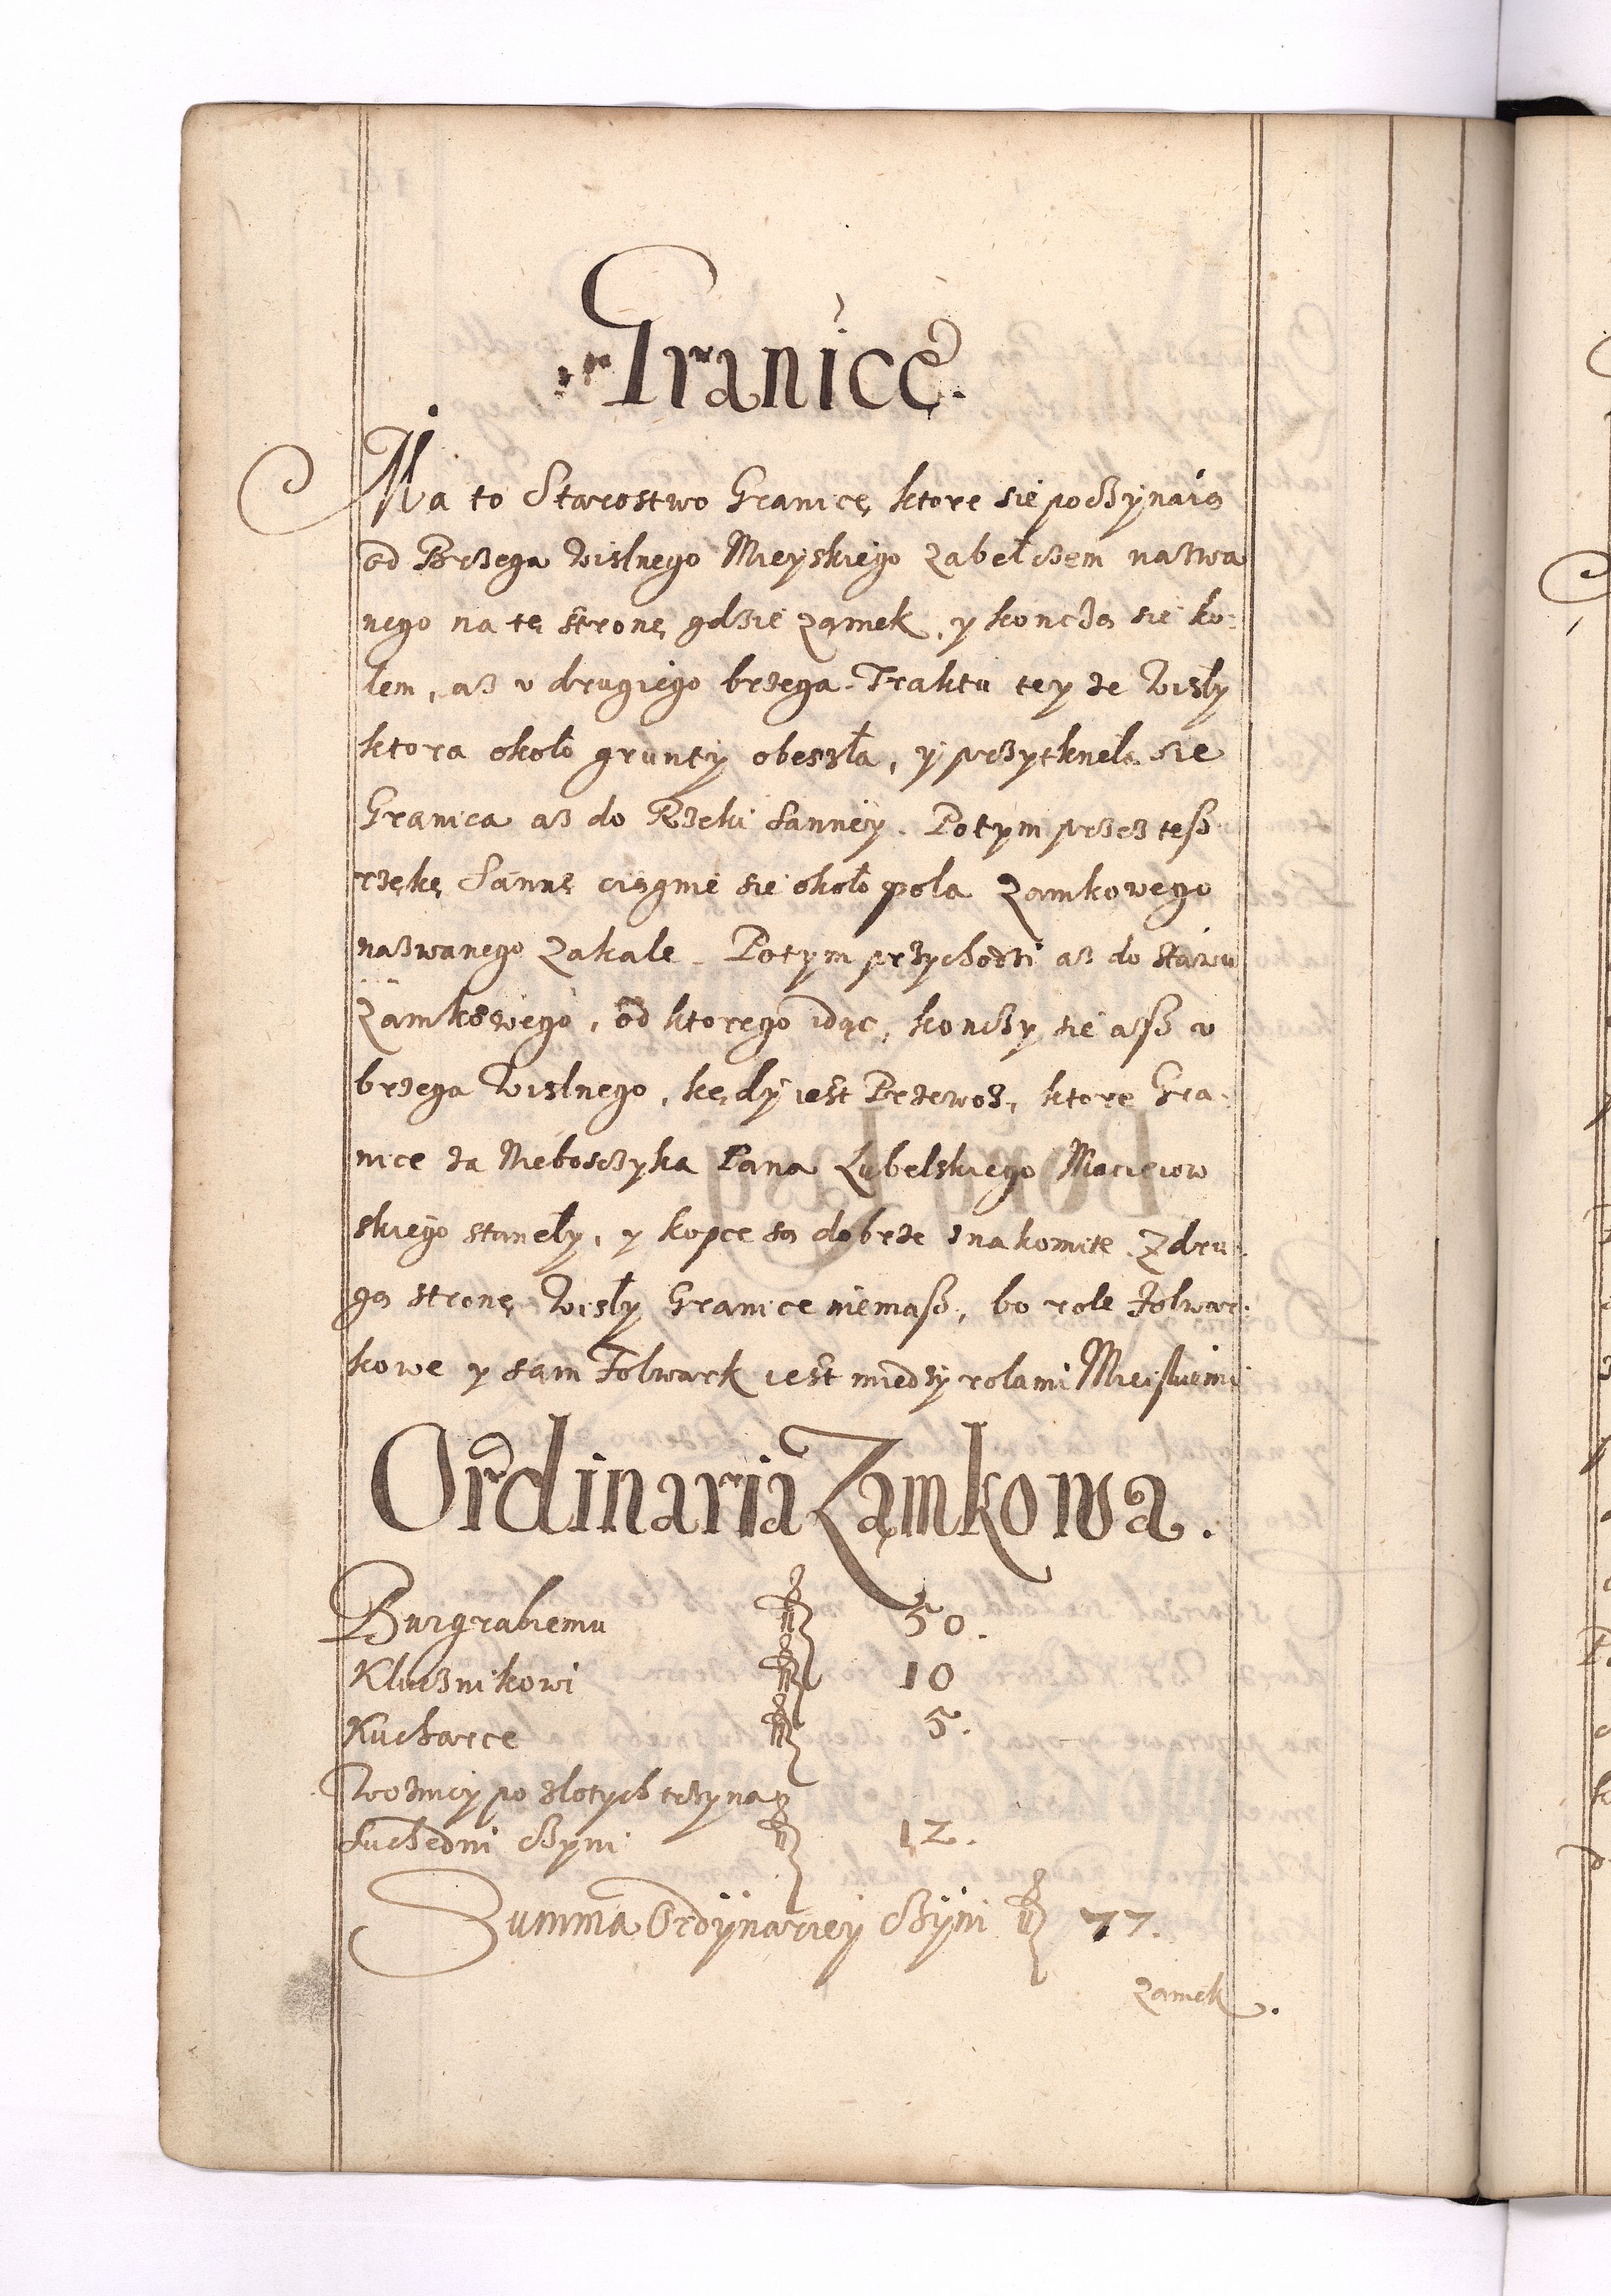 Granice.
Ma to Starostwo Granicę, ktore się poczynaią
od Brzega Wislnego Mieyskiego Zabełczem nazwa
nego na tę stronę gdzie Zamek, y konczą się ko:
lem, az v drugiego brzega Traktu tey ze Wisły
ktora około grunty obeszła, y przytknęła się
Granica az do Rzeki Sanney. Potym przez tesz
rzękę Sannę ciągnie się około pola Zamkowego
nazwanego Zakale. Potym przychodzi az do stawu
Zamkowego, od ktorego idąc, konczy się asz v
brzega Wislnego, kędy iest Przewoz, ktore Gra:
nice za Nieboszczyka Pana Lubelskiego Macieiow
skiego stanęły, y kopce są dobrze znakomite. Z dru:
gą stronę Wisły Granice niemasz, bo role Folwar:
kowe y sam Folwark iest miedzy rolami Mieiskiemi
Ordinaria Zamkowa.
Burgrabiemu fl 50.
Klucznikowi fl 10
Kucharce fl 5.
Woznicy po zlotych trzy na
Suchedni czyni fl 12.
Summa Ordynariey czyni fl 77.
Zamek.